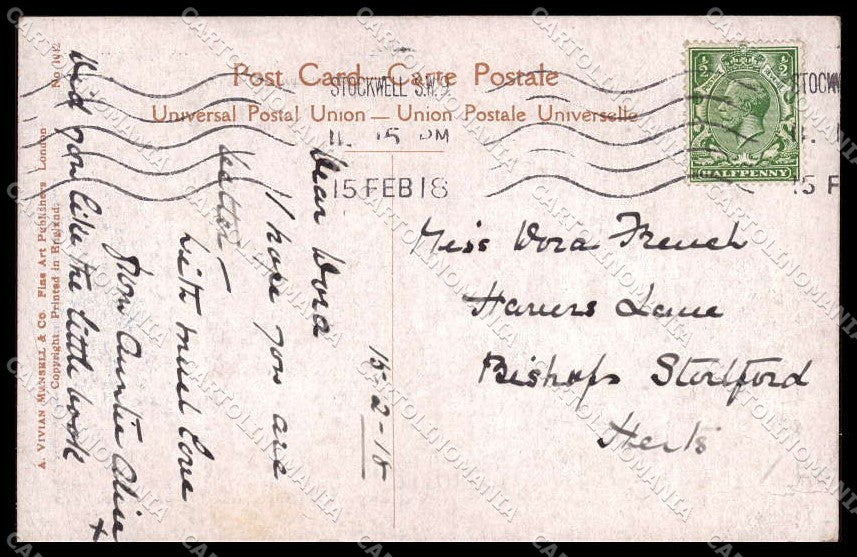 Post Card — Carte Postale
Universal Postal Union — Union Postale Universelle
STOCKWELL S.W.9.
15 PM
15 FEB 18
½ ½
POSTAGE REVENUE
HALFPENNY
STOCKW
15 F
15-2-18
Dear Dora
I hope you are
better —
with much love
from Auntie Alice
x
Did you like the little book
Miss Dora French
Lane
Bishops Stortford
Herts
A. VIVIAN MANSELL & CO. Fine Art Publishers London
Copyright: Printed in England.
No
CARTOLINOMANIA